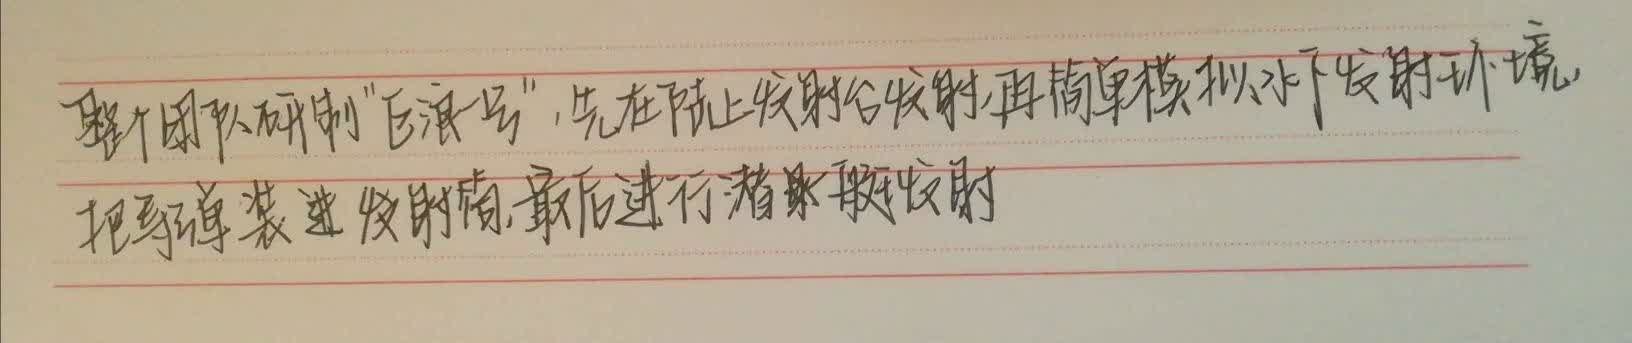 整个团队研制“巨浪一号”，先在陆上发射台发射，再简单模拟水下发射环境，
把导弹装进发射筒，最后进行潜水艇发射